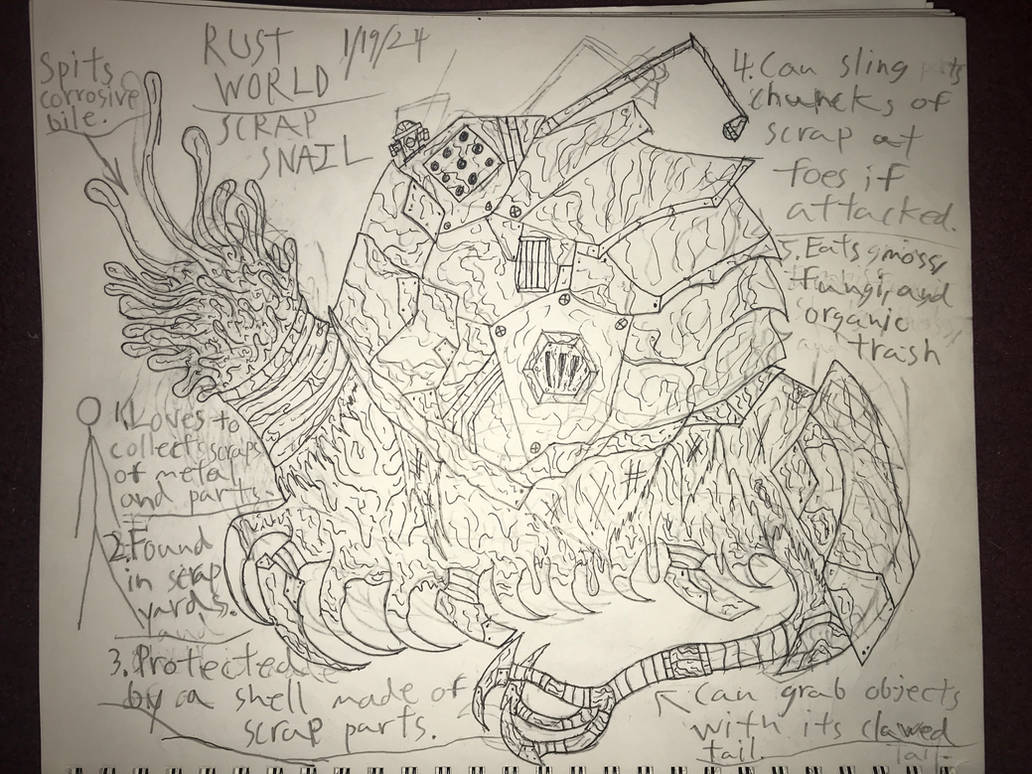 RUST 1/19/24
WORLD
SCRAP
SNAIL
Spits
corrosive
bile.
1. Loves to
collects scraps
of metal
and parts.
2. Found
in scrap
yards.
3. Protected
by a shell made of
scrap parts.
4. Can sling
chuncks of
scrap at
foes if
attacked.
5. Eats moss,
fungi, and
organic
trash
Can grab objects
with its clawed
tail.